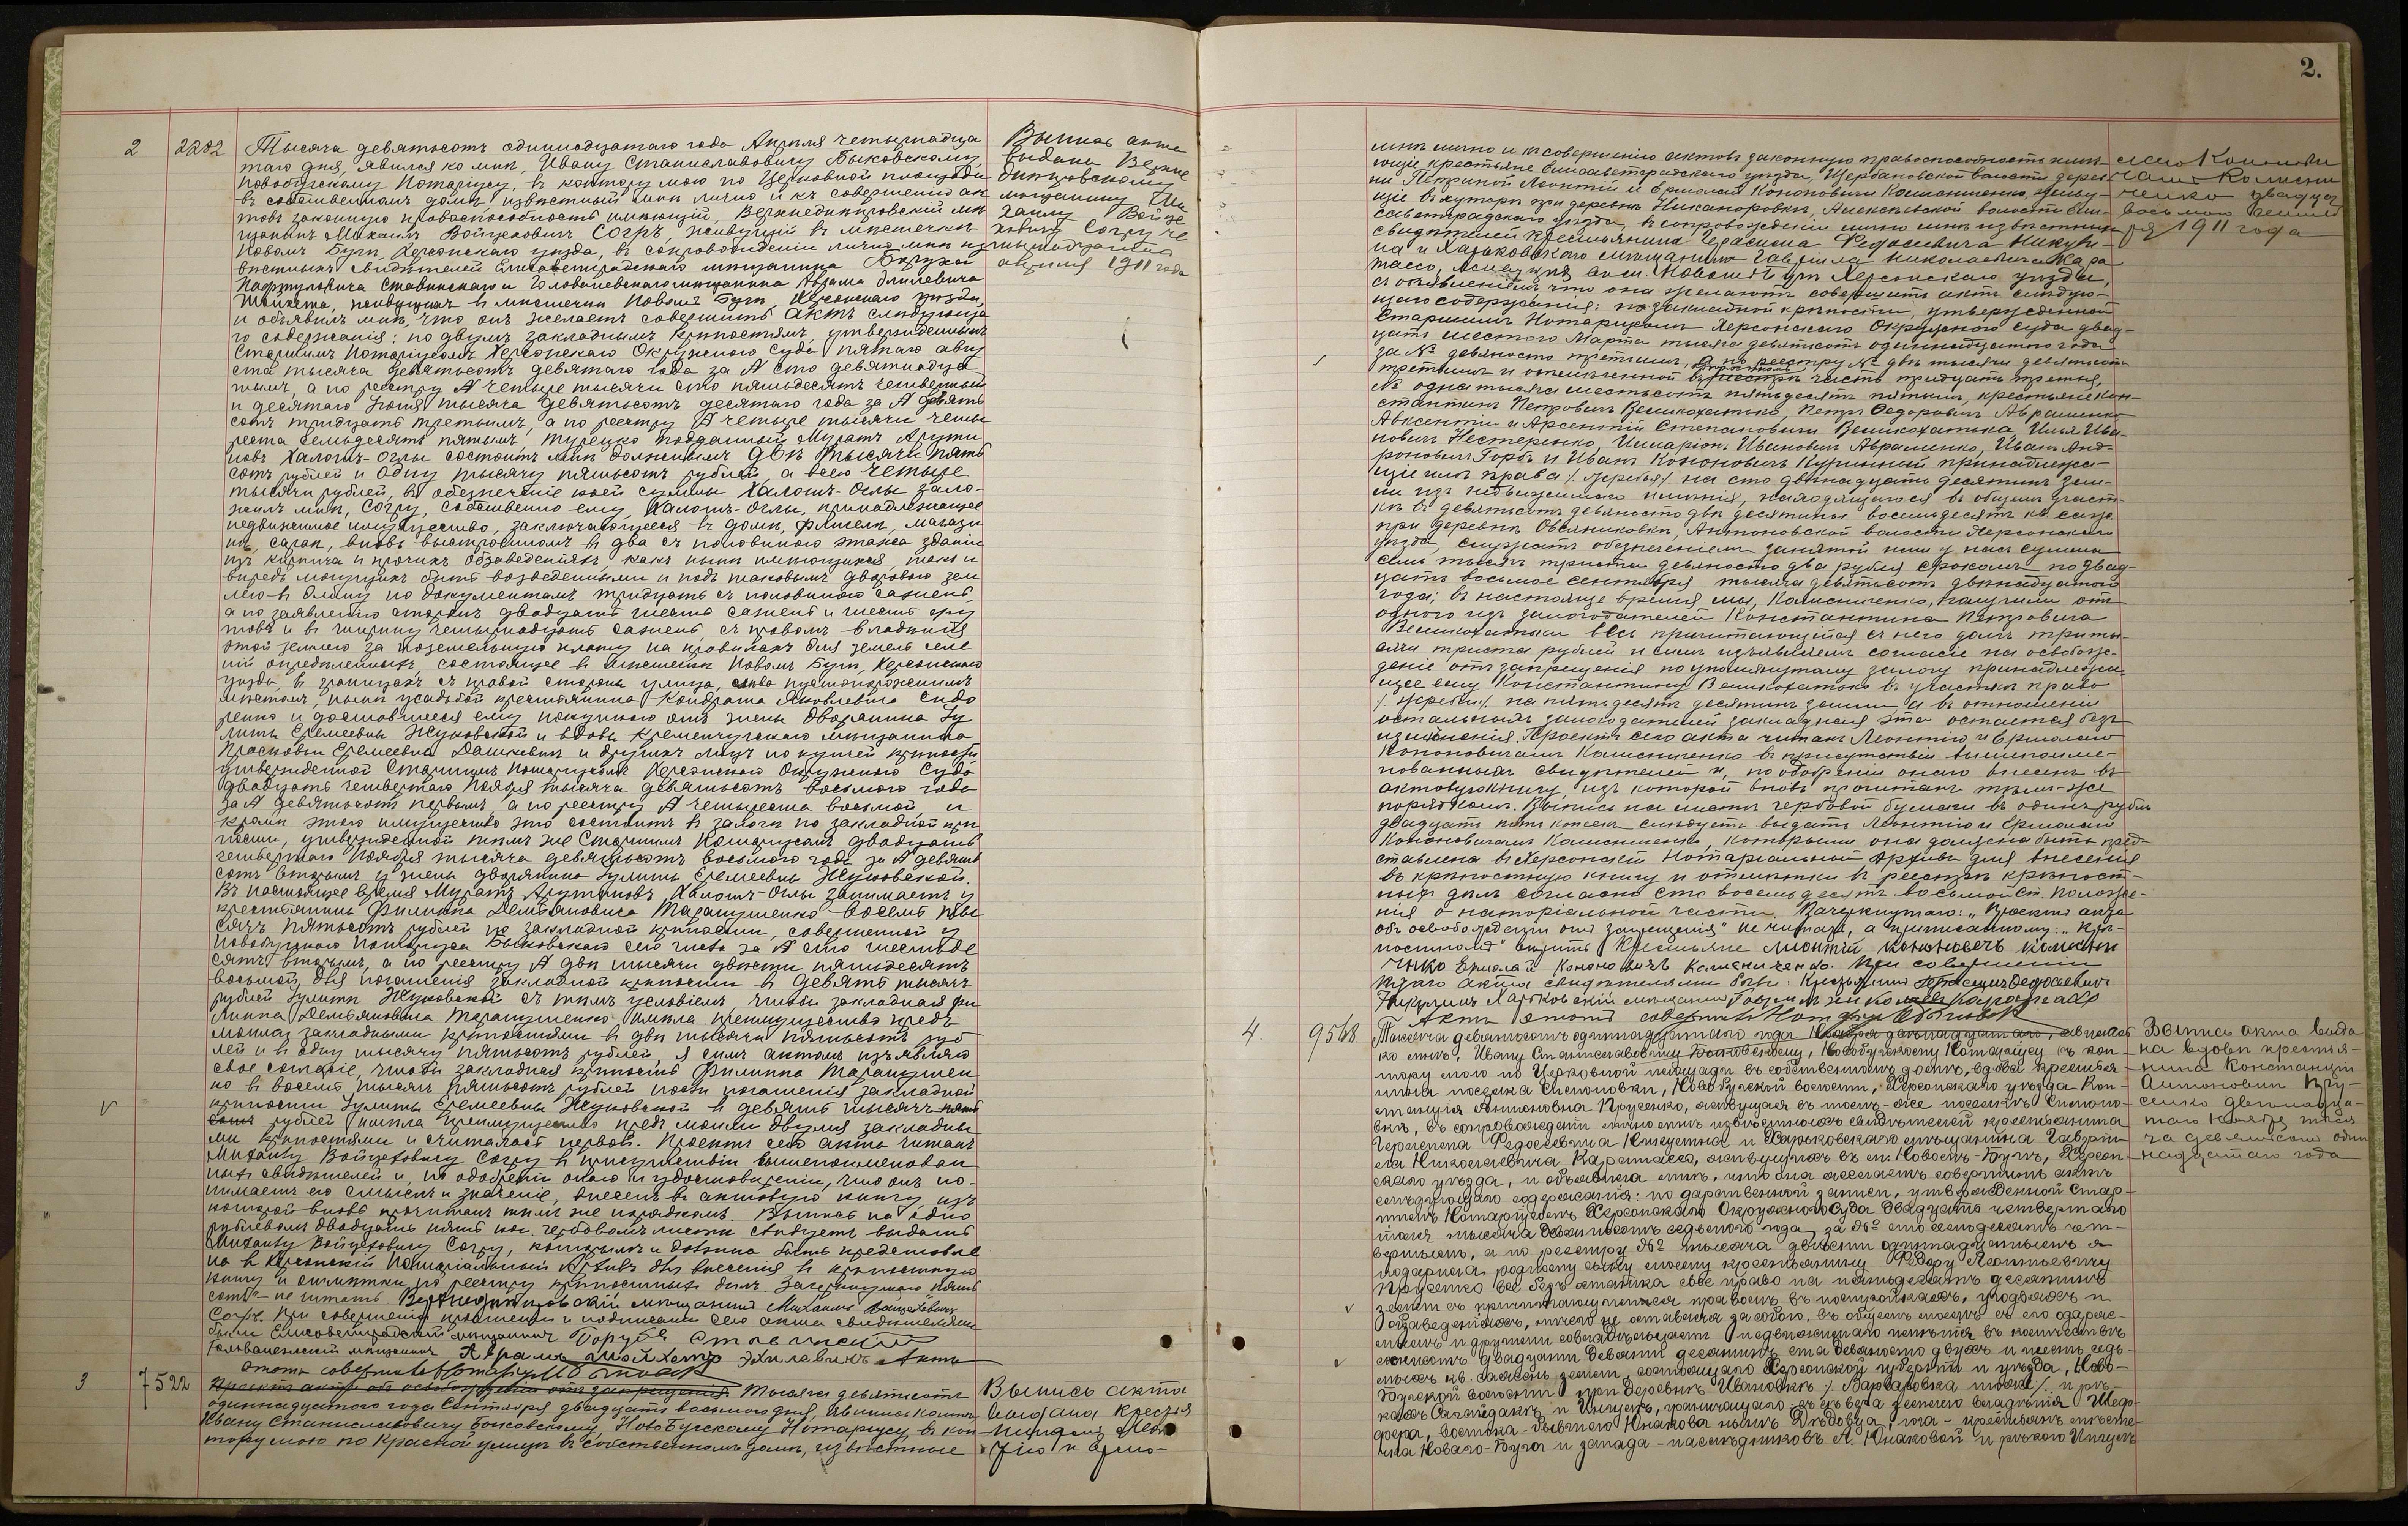 2.
2
2282
Тысяча девятьсотъ одиннадцатаго года Апрѣля четырнадца
таго дня, явился ко мнѣ, Ивану Станиславовичу Быковскому,
Новобугскому Нотаріусу, въ контору мою по Церковной площади
въ собственномъ домѣ, извѣстный мнѣ лично и къ совершенію ак
товъ законную правоспособность имѣющій, Верхнеднѣпровскій мѣ
щанинъ Михаилъ Войцеховичъ Согръ, живущій въ мѣстечкѣ
Новомъ Бугѣ, Херсонскаго уѣзда, въ сопровожденіи лично мнѣ из
вѣстныхъ свидѣтелей Елисаветградскаго мѣщанина Боруха
Ставинскаго и Голованевскаго мѣщанина Абрама Эхилевича
Шойхета, живущихъ въ мѣстечкѣ Новомъ Бугѣ, Херсонскаго уѣзда,
и объявилъ мнѣ, что онъ желаетъ совершить актъ слѣдующа
го содержанія: по двумъ закладнымъ крѣпостямъ, утвержденнымъ
Старшимъ Нотаріусомъ Херсонскаго Окружнаго Суда пятаго авгу
ста тысяча девятьсотъ девятаго года за № сто девятнадца
тымъ, а по реестру № четыре тысячи сто пятьдесятъ четвертый
и десятаго Іюля тысяча девятьсотъ десятаго года за № девять
сотъ тридцать третьимъ, а по реестру № четыре тысячи четы
реста семьдесятъ пятымъ, турецко подданный Муратъ Арути
новъ Халошъ-Оглы состоитъ мнѣ должнымъ двѣ тысячи пять
сотъ рублей и одну тысячу пятьсотъ рублей, а всего четыре
тысячи рублей, въ обезпеченіе коей суммы Халошъ-Оглы зало-
жилъ мнѣ, Согру, собственно ему, Халошъ-Оглы, принадлежащее
недвижимое имущество, заключающееся въ домѣ, флигелѣ, магази
нѣ, сараѣ, вновь выстроенномъ въ два съ половиною этажа зданіи
изъ кирпича и прочихъ обзаведеніяхъ, какъ нынѣ имѣющихся, такъ и
впредь могущихъ быть возведенными и подъ таковымъ дворовою зем
лею въ длину по документамъ тридцать съ половиною саженъ
а по заявленію сторонъ двадцать шесть саженъ и шесть фу
товъ и въ ширину четырнадцать саженъ, съ правомъ владѣнія
этой землею за поземельную плату на правилахъ для земель селе
ній опредѣленныхъ, состоящее въ мѣстечкѣ Новомъ Бугѣ, Херсонскаго
уѣзда въ границахъ съ правой стороны улица, слѣва пустопорожнимъ
мѣстомъ, нынѣ усадьбой крестьянина Кондрата Яковлевича Сидо
ренко и доставшееся ему покупкою отъ жены дворянина Іу
литы Еремеевны Жуковской и вдовы Кременчугскаго мѣщанина
Прасковьи Еремеевны Дашкевичъ и другихъ лицъ по купчей крѣпости,
утвержденной Старшимъ Нотаріусомъ Херсонскаго Окружнаго Суда
двадцать четвертаго Ноября тысяча девятьсотъ восьмого года
за № девятьсотъ первымъ, а по реестру № четыреста восьмой и
кромѣ этого имущество это состоитъ въ залогѣ по закладной крѣ
пости, утвержденной тѣмъ же Старшимъ Нотаріусомъ двадцать
четвертаго Ноября тысяча девятьсотъ восьмого года за № девять
сотъ вторымъ у жены дворянина Іулиты Еремеевны Жуковской.
Въ настоящее время Муратъ Арутиновъ Халошъ-Оглы занимаетъ у
крестьянина Филиппа Демьяновича Таранушенко восемь ты
сячъ пятьсотъ рублей по закладной крѣпости, совершенной у
Новобугскаго Нотаріуса Быковскаго сего числа за № сто шестьде
сятъ вторымъ, а по реестру № двѣ тысячи двѣсти пятьдесятъ
восьмой, для погашенія закладной крѣпости въ девять тысячъ
рублей Іулиты Жуковской съ тѣмъ условіемъ, чтобы закладная Фи
липпа Демьяновича Таранушенко имѣла преимущество предъ
моими закладными крѣпостями въ двѣ тысячи пятьсотъ руб
лей и въ одну тысячу пятьсотъ рублей, я симъ актомъ изъявляю
свое согласіе, чтобы закладная крѣпость Филиппа Таранушен
ко въ восемь тысячъ пятьсотъ рублей послѣ погашенія закладной
крѣпости Іулиты Еремеевны Жуковской въ девять тысячъ пять
сотъ рублей имѣла преимущество предъ моими двумя закладны
ми крѣпостями и считалась первой. Проектъ сего акта читанъ
Михаилу Войцеховичу Согру въ присутствіи вышепоименован
ныхъ свидѣтелей и, по одобреніи онаго и удостовѣреніи, что онъ по-
нимаетъ его смыслъ и значеніе, внесенъ въ актовую книгу изъ
которой вновь прочитанъ тѣмъ же порядкомъ. Выпись на одно
рублевомъ двадцать пять коп. гербовомъ листѣ слѣдуетъ выдать
Михаилу Войцеховичу Согру, которымъ и должна быть представле
на въ Херсонскій Нотаріальный Архивъ для внесенія въ крѣпостную
книгу и отмѣтки въ реестру крѣпостныхъ дѣлъ. Зачеркнутаго „пять
сотъ" не читать. Верхнеднѣпровскій мѣщанинъ Михаилъ Войцеховичъ
Согръ. При совершеніи прочтеніи и подписаніи сего акта свидѣтелями
были Елисаветградскій мѣщанинъ Борухъ Ставинскій
Голованевскій мѣщанинъ Абрамъ Шойхетъ Эхилевичъ Актъ
этотъ совершилъ Нотаріусъ Быковск
Выпись акта
выдана Верхне
днѣпровскому
мѣщанину Ми
хаилу Войце
ховичу Согру че
тырнадцатаго
апрѣля 1911 года
3
7522
Проектъ акта объ освобожденіи отъ запрещенія. Тысяча девятьсотъ
одиннадцатаго года Сентября двадцать восьмого дня, явились ко мнѣ,
Ивану Станиславовичу Быковскому, Ново Бугскому Нотаріусу, въ кон
тору мою по Красной улицѣ въ собственномъ домѣ, извѣстные
Выпись акта
выдана крестья
намъ Леон
тію и Ермо-
мнѣ лично и къ совершенію актовъ законную правоспособность имѣ-
ющіе крестьяне Елисаветградскаго уѣзда, Щербановской волости дерев
ни Петриной Леонтій и Ермолай Кононовичи Колисниченко, живу-
щіе въ хуторѣ при деревнѣ Никаноровкѣ, Алексѣевской волости Ели-
саветградскаго уѣзда, въ сопровожденіи лично мнѣ извѣстныхъ
свидѣтелей крестьянина Герасима Федосеевича Никули-
на и Харьковскаго мѣщанина Гавріила Николаевича Кара
тассо, живущихъ въ м. Новомъ Бугѣ Херсонскаго уѣзда,
съ объявленіемъ что они желаютъ совершить актъ слѣдую-
щаго содержанія: по закладной крѣпости, утвержденной
Старшимъ Нотаріусомъ Херсонскаго Окружнаго Суда двад-
цать шестого Марта тысяча девятьсотъ одиннадцатаго года
за № девяносто третьимъ, а по реестру № двѣ тысячи девятьсотъ
третьимъ и отмѣченной въ реестрѣ часть тридцать третья,
№ одна тысяча шестьсотъ пятьдесятъ пятымъ, крестьяне Кон-
стантинъ Петровичъ Великохатько, Петръ Федоровичъ Авраменко
Авксентій и Арсентій Степановичи Великохатька, Илья Ива-
новичъ Нестеренко, Иларіонъ Ивановичъ Авраменко, Иванъ Анд-
роновичъ Горбъ и Иванъ Кононовичъ Куринный принадлежа-
щіе имъ права /жребья/ на сто двѣнадцать десятинъ зем-
ли изъ недвижимаго имѣнія, находящагося въ общемъ участ-
кѣ въ девятьсотъ девяносто двѣ десятины восемьдесятъ кв. саж.
при деревнѣ Овсянниковкѣ, Антоновской волости Херсонскаго
уѣзда, служатъ обезпеченіемъ занятой ими у насъ суммы
семь тысячъ триста девяносто два рубля срокомъ по двад-
цать восьмое сентября тысяча девятьсотъ двѣнадцатаго
года; въ настоящее время мы, Колисниченко, получили отъ
одного изъ залогодателей Константина Петровича
Великохатька весь причитающійся съ него долгъ три ты-
сячи триста рублей и симъ изъявляемъ согласіе на освобож-
деніе отъ запрещенія по упомянутому залогу принадлежа-
щее ему Константину Великохатько въ участкѣ право
/жребьи/ на пятьдесятъ десятинъ земли а въ отношеніи
остальныхъ залогодателей закладная эта остается безъ
измѣненія. Проектъ сего акта читанъ Леонтію и Ермолаю
Кононовичамъ Колисниченко въ присутствіи вышепоиме-
нованныхъ свидѣтелей и, по одобреніи онаго внесенъ въ
актовую книгу, изъ которой вновь прочитанъ тѣмъ-же
порядкомъ. Выпись на листѣ гербовой бумаги въ одинъ рубль
двадцать пять копѣекъ слѣдуетъ выдать Леонтію и Ермолаю
Кононовичамъ Колисниченко, которыми она должна быть пред-
ставлена въ Херсонскій Нотаріальный Архивъ для внесенія
въ крѣпостную книгу и отмѣтки въ реестрѣ крѣпост-
ныхъ дѣлъ согласно сто восемьдесятъ восьмой ст. Положе-
нія о нотаріальной части. Зачеркнутаго: „Проектъ акта
объ освобожденіи отъ запрещенія" не читать, а приписанному: „крѣ-
постномъ" вѣрить Крестьяне Лионтій Кононовечъ Колисни
чнко Ермолай Кононовичъ Колисниченко. При совершеніи
сего акта свидѣтелями были: Крестьянинъ Герасимъ Федосеевичъ
Никулинъ Харьковскій мѣщанинъ Гавріилъ Николаевъ Каратассо
Актъ этотъ совершилъ Нотаріусъ Быковск
лаю Кононови
чамъ Колисни
ченко двадца
ть восьмого сентяб
ря 1911 года
4.
9568
Тысяча девятьсотъ одиннадцатаго года Ноября двѣнадцатаго, явилась
ко мнѣ, Ивану Станиславовичу Быковскому, Новобугскому Нотаріусу въ кон-
тору мою по Церковной площади въ собственномъ домѣ, вдова крестья
нина поселка Симоновки, Новобугской волости, Херсонскаго уѣзда Кон-
станція Антоновна Прусенко, живущая въ томъ-же поселкѣ Симоно-
вкѣ, въ сопровожденіи лично мнѣ извѣстныхъ свидѣтелей крестьянина
Герасима Федосеевича Никулина и Харьковскаго мѣщанина Гаврі-
ила Николаевича Каратассо, живущихъ въ м. Новомъ-Бугѣ, Херсон-
скаго уѣзда, и объявила мнѣ, что она желаетъ совершить актъ
слѣдующаго содержанія: по дарственной записи, утвержденной Стар-
шимъ Нотаріусомъ Херсонскаго Окружнаго Суда двадцать четвертаго
мая тысяча девятьсотъ седьмого года, за № сто семьдесятъ чет-
вертымъ, а по реестру № тысяча двѣсти одиннадцатымъ я
подарила родному сыну моему крестьянину Федору Леонтьевичу
Прусенко все безъ остатка свое право на пятьдесятъ десятинъ
земли съ принадлежащимся правомъ въ постройкахъ, угодьяхъ и
обзаведеніяхъ, ничего не оставляя за собою, въ общемъ моемъ съ его одаряе-
мымъ и другими совладѣльцами недвижимаго имѣнія въ количествѣ
двадцати девяти десятинъ ста девяносто двухъ и шесть седь-
мыхъ кв. саженъ земли, состоящаго Херсонской губерніи и уѣзда, Ново-
Бугской волости при деревнѣ Ивановкѣ /Варваровка тожъ/ и рѣ-
кахъ Сагайдакѣ и Ингулѣ, граничащаго: съ сѣвера землею владѣнія Шедо-
фера, востока - бывшаго Юнакова нынѣ Дѣдовца, юга - крестьянъ мѣсте-
чка Новаго-Буга и запада - наслѣдниковъ А. Юнаковой и рѣкою Ингуль
Выпись акта выда
на вдовѣ крестья-
нина Констанціи
Антоновнѣ Пру-
сенко двѣнадца-
таго Ноября тыся
ча девятьсотъ один
надцатаго года